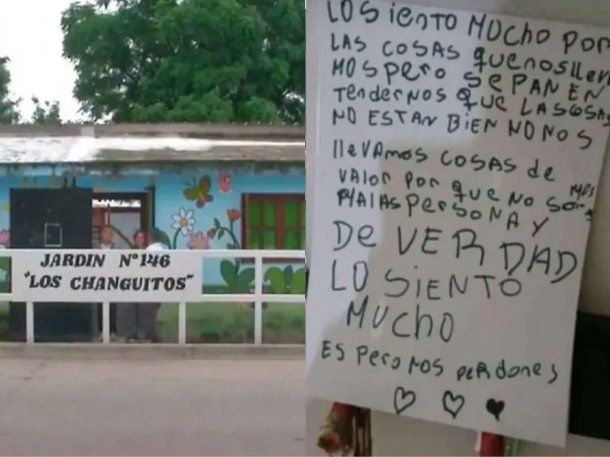 JARDIN Nº146
"LOS CHANGUITOS"
LO SIENTO MUCHO POR
LAS COSAS QUE NOS LLEVA
MOS PERO SEPAN EN
TENDERNOS QUE LAS COSAS
NO ESTAN BIEN NO NOS
LLEVAMOS COSAS DE
VALOR POR QUE NO SOMOS
MALAS PERSONA Y
DE VERDAD
LO SIENTO
MUCHO
ES PERO NOS PERDONES